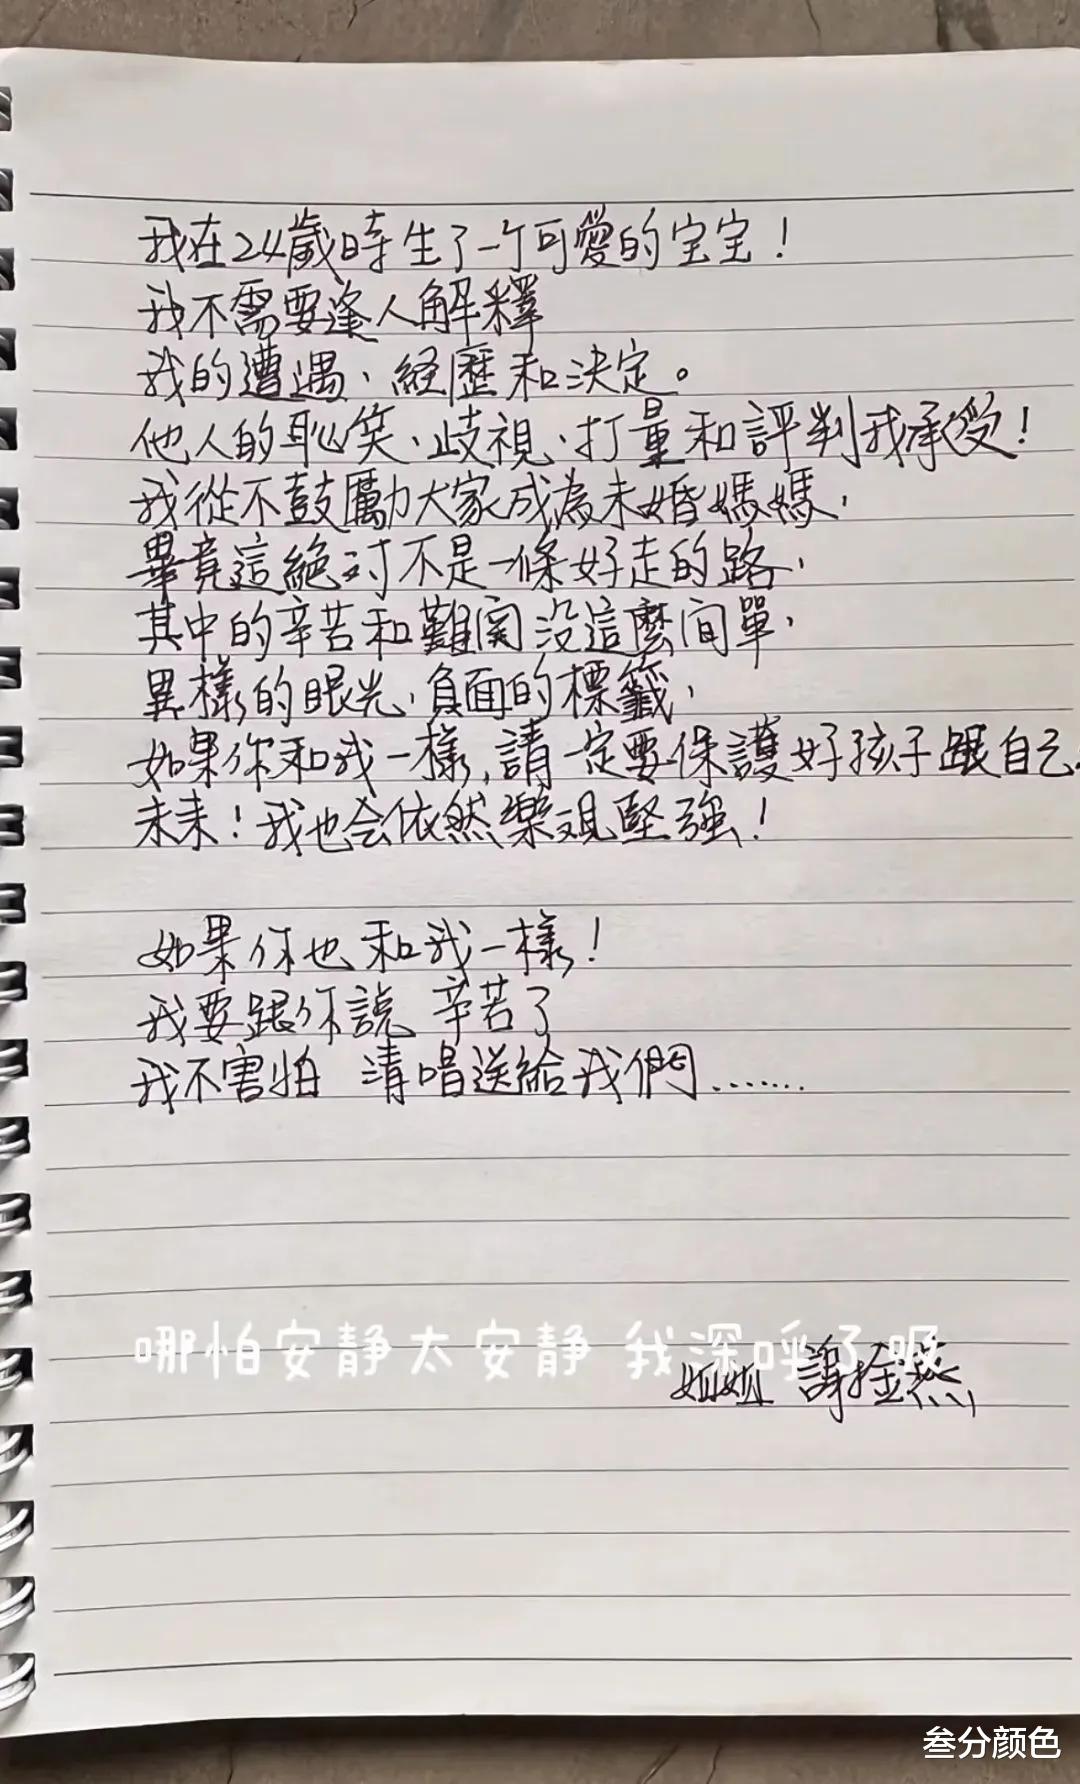 我在24歲時生了一个可愛的宝宝！
我不需要逢人解釋
我的遭遇、経歷和決定。
他人的恥笑、歧視、打量和評判我承受！
我從不鼓勵大家成為未婚媽媽，
畢竟這絕对不是一條好走的路，
其中的辛苦和難関没這麼间單，
異樣的眼光、負面的標籤，
如果你和我一樣，請一定要保護好孩子跟自己。
未来！我也会依然樂观堅強！
如果你也和我一樣！
我要跟你説 辛苦了
我不害怕 清唱送給我們.......
哪怕安静太安静 我深呼了吸
姐姐 謝金燕
叁分颜色